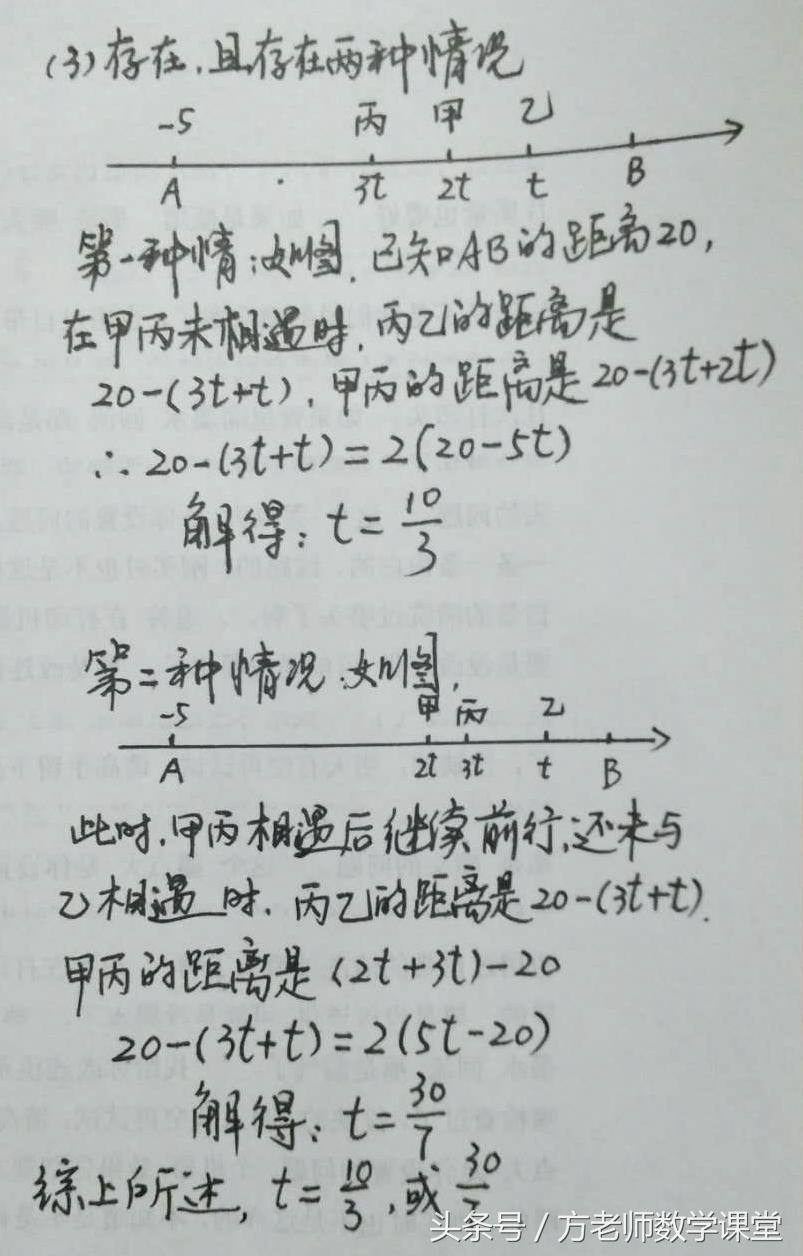 (3)存在,且存在两种情况
-5 丙 甲 乙
A 3t 2t t B
第一种情:如图,已知AB的距离20,
在甲丙未相遇时,丙乙的距离是
20-(3t+t),甲丙的距离是20-(3t+2t)
∴20-(3t+t)=2(20-5t)
解得:t=10/3
第二种情况.如图,
-5 甲 丙 乙
A 2t 3t t B
此时,甲丙相遇后继续前行,还未与
乙相遇时,丙乙的距离是20-(3t+t).
甲丙的距离是(2t+3t)-20
20-(3t+t)=2(5t-20)
解得:t=30/7
综上所述,t=10/3,或30/7
头条号/方老师数学课堂